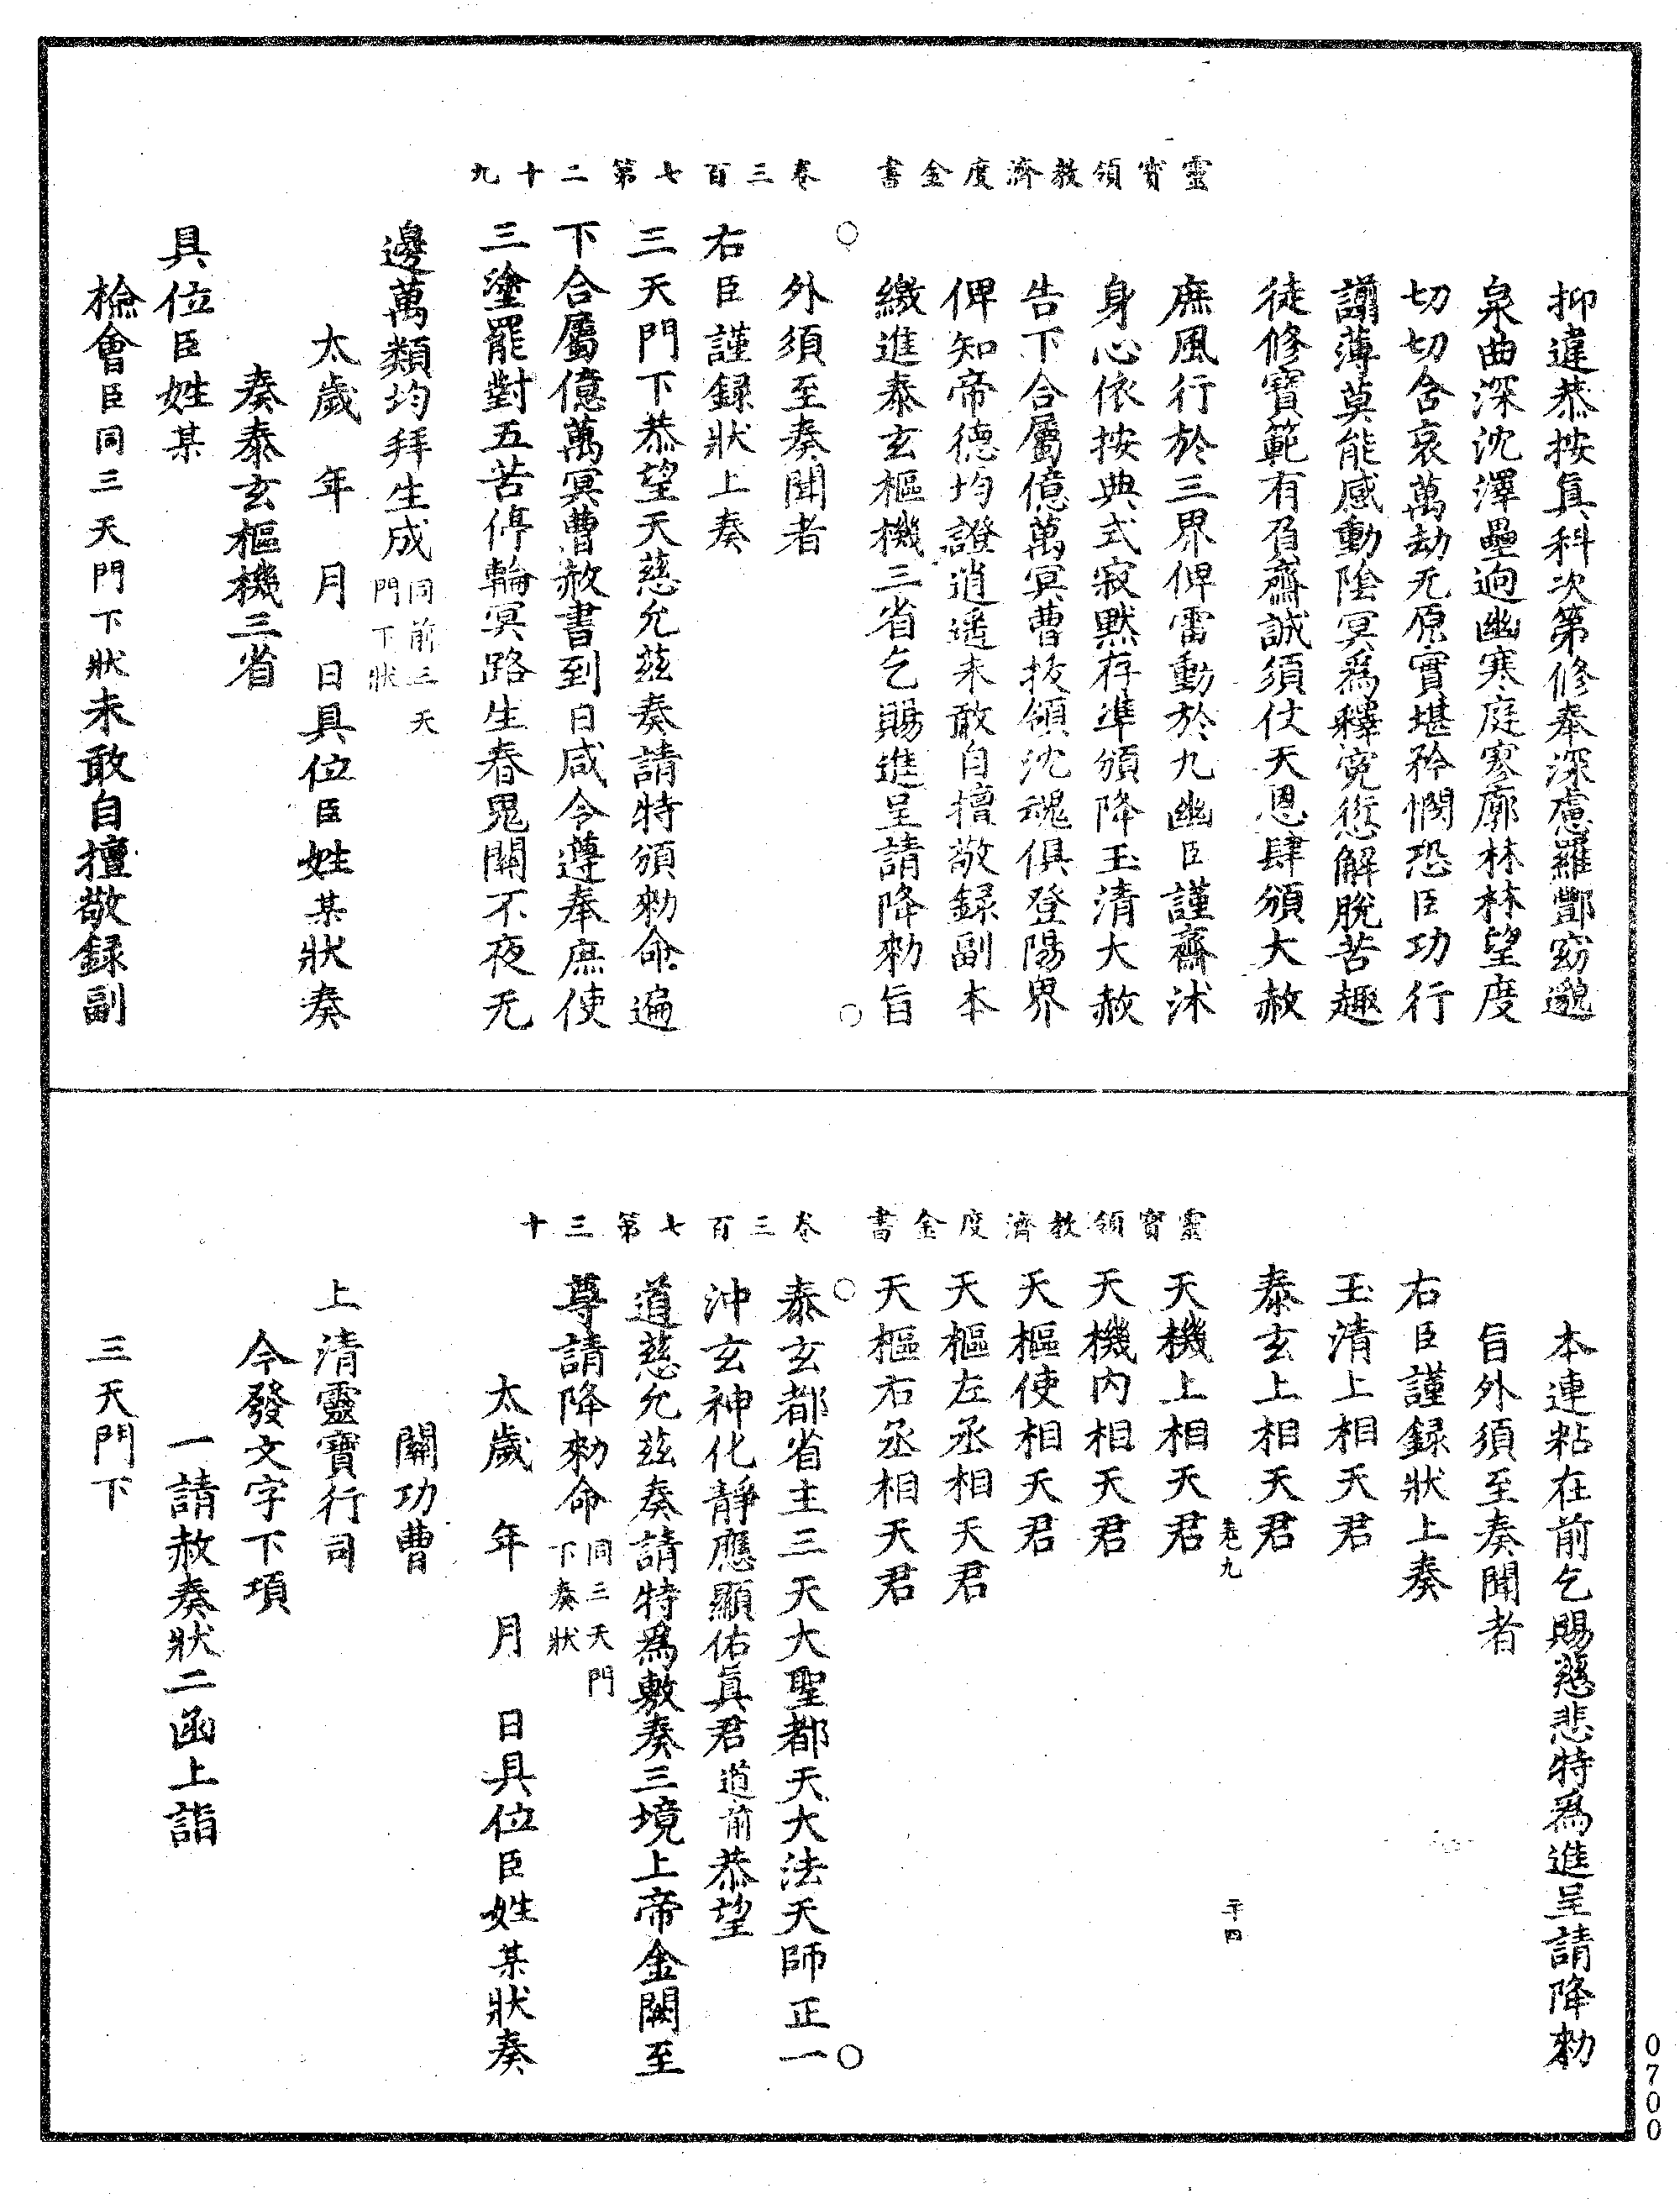 靈寶領教濟度金書　卷三百七第二十九
抑違恭按眞科次第修奉深慮羅酆窈邈
泉曲深沈澤壘逈幽寒庭寥廓林林望度
切切含哀萬劫无原實堪矜憫恐臣功行
譾薄莫能感動陰冥爲釋寃愆解脫苦趣
徒修寶範有負齋誠須仗天恩肆頒大赦
庶風行於三界俾雷動於九幽臣謹齋沐
身心依按典式寂默存準頒降玉清大赦
告下合屬億萬冥曹拔領沈魂俱登陽界
俾知帝德均證逍遥未敢自擅敬録副本
繳進泰玄樞機三省乞賜進呈請降勑旨
外須至奏聞者
右臣謹録狀上奏
三天門下恭望天慈允茲奏請特頒勑命遍
下合屬億萬冥曹赦書到日咸令遵奉庶使
三塗罷對五苦停輪冥路生春鬼關不夜无
邊萬類均拜生成同前三天門下狀
太歲　年　月　日具位臣姓某狀奏
奏泰玄樞機三省
具位臣姓某
檢會臣同三天門下狀未敢自擅敬録副
靈寶領教濟度金書　卷三百七第三十
本連粘在前乞賜慈悲特爲進呈請降勑
旨外須至奏聞者
右臣謹録狀上奏
玉清上相天君
泰玄上相天君
卷九　二十四
天機上相天君
天機内相天君
天樞使相天君
天樞左丞相天君
天樞右丞相天君
泰玄都省主三天大聖都天大法天師正一
沖玄神化靜應顯佑眞君道前恭望
道慈允茲奏請特爲敷奏三境上帝金闕至
尊請降勑命同三天門下奏狀
太歲　年　月　日具位臣姓某狀奏
關功曹
上清靈寶行司
今發文字下項
一請赦奏狀二函上詣
三天門下
0700